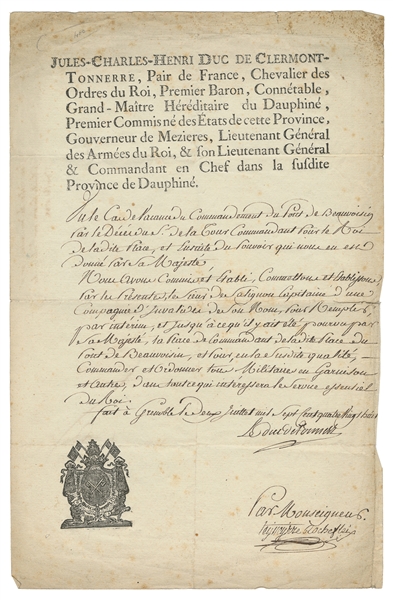 JULES-CHARLES-HENRI DUC DE CLERMONT-
TONNERRE, Pair de France, Chevalier des
Ordres du Roi, Premier Baron, Connétable,
Grand-Maître Héréditaire du Dauphiné,
Premier Commis né des États de cette Province,
Gouverneur de Mezieres, Lieutenant Général
des Armées du Roi, & son Lieutenant Général
& Commandant en Chef dans la susdite
Province de Dauphiné.
Vu le Cas de Vacance du Commandement du Pont de Beauvoisin
par le Décès du Sr. de la Tour Commandant pour le Roi
de ladite Place, et Ensuite du Pouvoir qui nous en est
donné par Sa Majesté
Nous Avons Commis et Etabli, Commettons et Etablissons
par les Présentes le Sieur de Capitaine d'une
Compagnie d'Invalides de son Nom, pour Remplir,
par intérim, et Jusqu'à ce qu'il y ait été pourvu par
Sa Majesté, la Place de Commandant de ladite Place du
Pont de Beauvoisin, et pour, en la Susdite qualité,
Commander et Ordonner aux Militaires en Garnison
et Autres, dans tout ce qui interessera le Service essentiel
du Roi.
fait à Grenoble le Deux Juillet mil Sept Cent quatre Vingt
Le duc de Tonnerre
Par Monseigneur